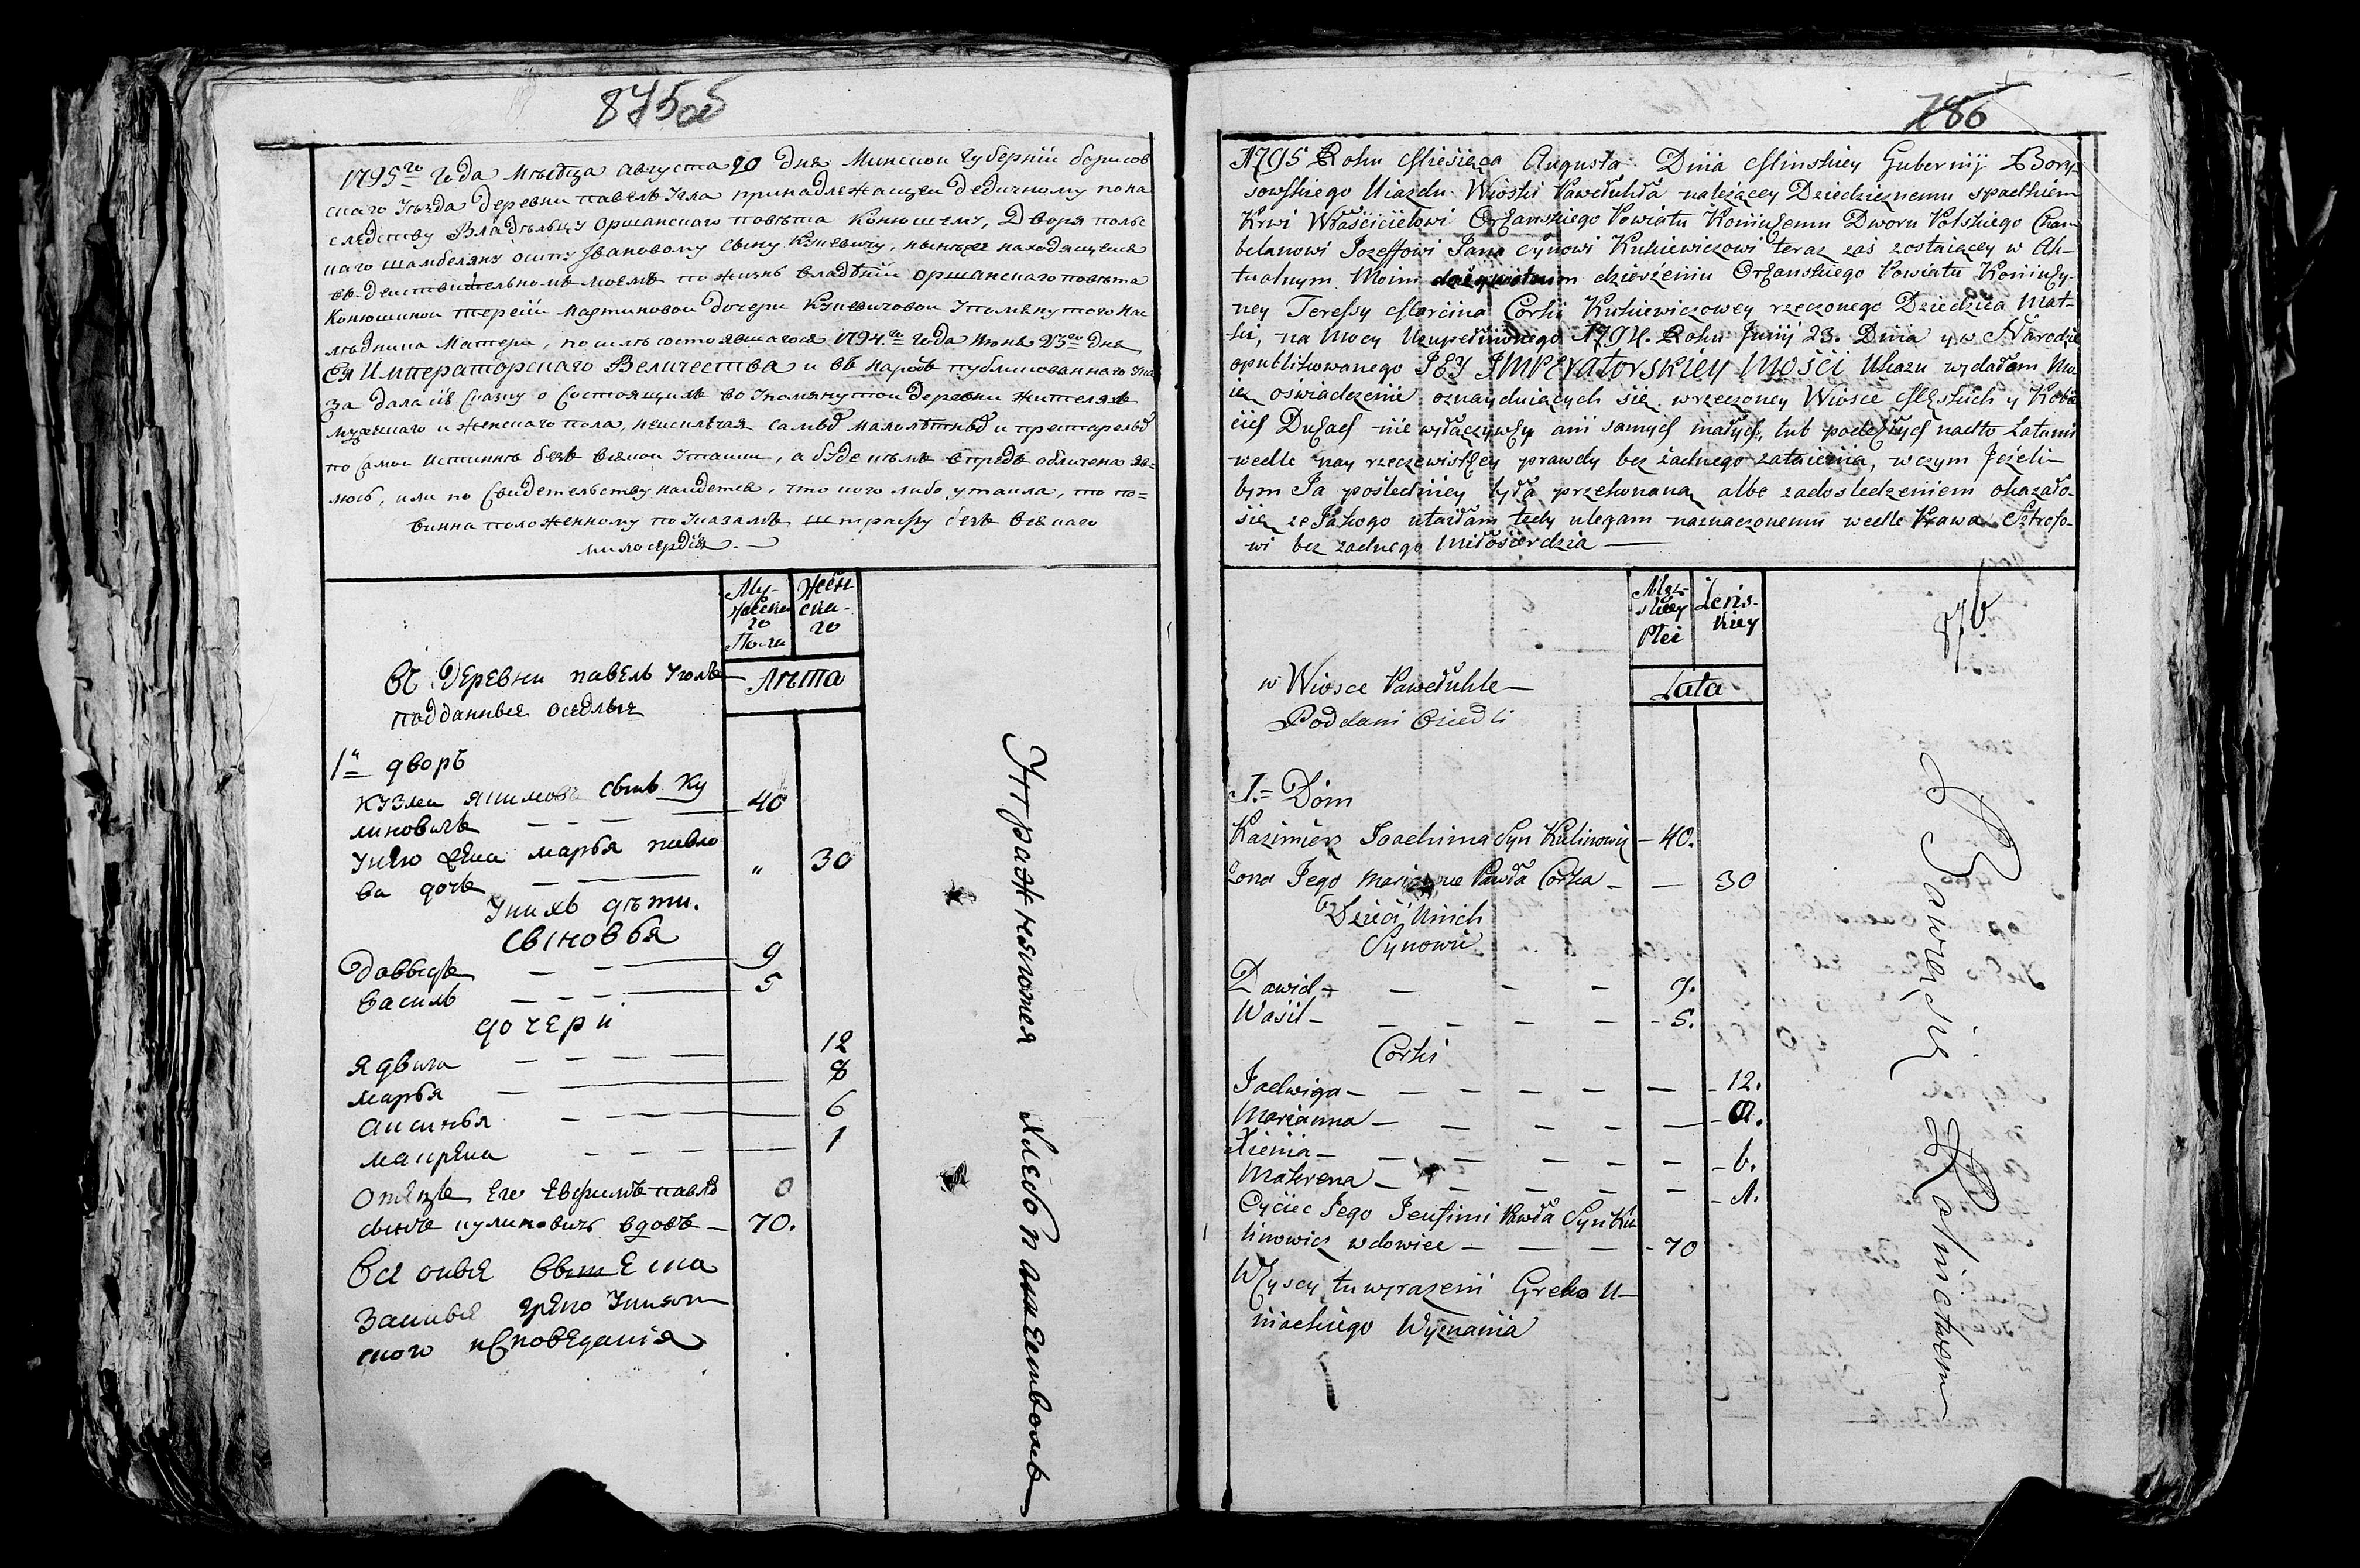 875об
1795го года Мѣсяца августа 20 дня Минской Губерніи борисов
скаго Уѣзда Деревни павелъ Угла принадлежащей дедичному по на
следству Владѣльцу Оршанскаго повѣта Конюшему, Двора поль
скаго шамбеляну осипу Ивановому сыну Куцевичу, нынѣ же находящейся
въ действительномъ моемъ по жизнь владѣніи оршанскаго повѣта
Конюшиной Терезіи Мартиновой дочери Куцевичовой Упомянутого нас
лѣдника Матери, по силѣ состоявшагося 1794го года Июня 23го дня
Ея Императорскаго Величества и въ народъ публикованнаго Ука
за дала сію Сказку о Состоящихъ во Упомянутой деревни жителяхъ
мужескаго и женскаго пола, неисключая самыхъ малолѣтныхъ и престарелыхъ
по самой Истинне безъ всякой Утайки, а буде кемъ впредь обличена яв-
люсь, или по Свидетельству найдется, что кого либо утаила, то по=
винна положенному по Указамъ штрафу безъ всякаго
милосердія. —
Му-
жеска
го
Пола
Жен-
ска-
го
Въ Деревни павелъ Уголъ
подданныя оседлыя
Лѣта
1й дворъ
кузма якимовъ сынъ Ку
линовичъ — — — 40
Унего жена марья павло
ва дочь — — „ 30
Унихъ дѣти.
Сыновья
Давыдъ — — 9
василь — — — 5
дочери
Ядвига — — — — 12
марья — 8
аксинья — 6
макрена — — — — 1
Отецъ Его Евфимъ павла 0
сынъ кулиновичъ вдовъ — 70.
Все оные Вышеска
занные греко Униат
ского исповеданія
Упражняются Хлебопашествомъ
786
1795 Roku Miesiąca Augusta Dnia Minskiey Gubernij Bory-
sowskiego Uiazdu Wioski Pawełuhła należącey Dziedzicznemu spadkiem
Krwi Właścicielowi Orszanskiego Powiatu Koniuszemu Dworu Polskiego Cham-
belanowi Jozeffowi Jana Synowi Kukiewiczowi teraz zaś zostaiącey w Ak-
tualnym Moim dożywotnim dzierżeniu Orszanskiego Powiatu Koniuszy-
ney Teressy Marcina Corki Kukiewiczowey rzeczonego Dziedzica Mat-
ki, na Mocy Uzupełnionego 1794. Roku Junij 23. Dnia y w Narodzie
opublikowanego JEY IMPERATORSKIEY MOŚCI Ukazu wydałam Mo-
ie oświadczenie oznayduiących się w rzeczoney Wiosce Męskich y Kobie
cich Duszach nie wyłączywszy ani samych małych, lub podeszłych nadto Latami
wedle nay rzeczewistszey prawdy bez żadnego zataienia, w czym Jeżeli-
bym Ja posledniey była przekonana albo zadosledzeniem okazało-
się że Jakogo utaiłam tedy ulegam naznaczonemu wedle Prawa Sztrofo-
wi bez żadnego Miłosierdzia —
Męz-
skiey
Płci
Żeńs-
kiey
876
w Wiosce Pawełuhle —
Poddani Osiedli
Lata
1.= Dom
Kazimierz Joachima Syn Kulinowicz — 40.
Żona Jego Marianna Pawła Corka — — 30
Dzieci Unich
Synowie
Dawid — — — — 9.
Wasil — — — — — 5.
Corki
Jadwiga — — — — — — 12.
Marianna — — — — — — 8.
Xienia — — — — — — 6.
Makrena — — — — — — 1.
Oyciec Jego Jeufimi Pawła Syn Ku
linowicz wdowiec — — — 70
Wszyscy tu wyrażeni Greko U-
niackiego Wyznania
Bawią się Rolnictwem